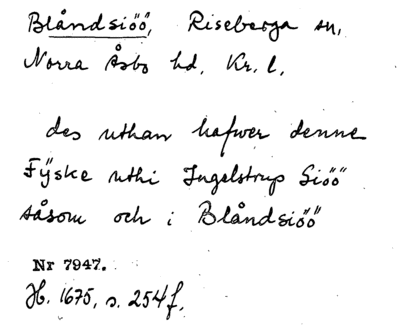 Blåndsiöö, Riseberga sn,
Norra Åsbo hd. Kr. l.
des uthan hafwer denne
Fÿske uthi Ingelstrup Siöö
såsom och i Blåndsiöö
Nr 7947.
H. 1675, s. 254 f.